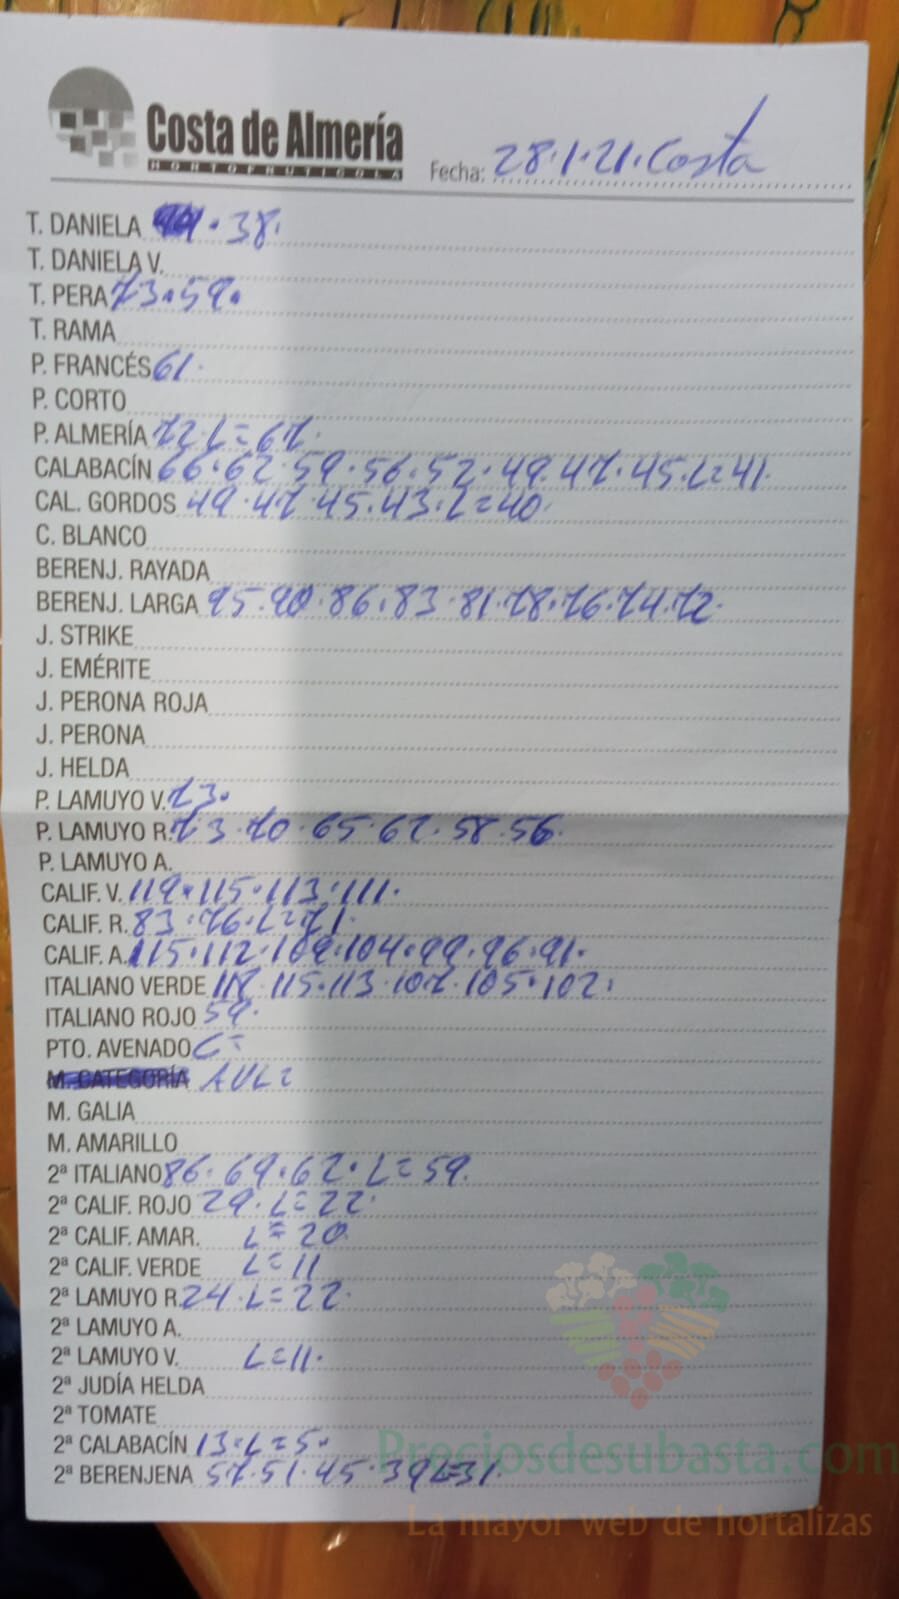 Costa de Almería
HORTOFRUTICOLA
Fecha: 28.1.21. Costa
T. DANIELA . 38.
T. DANELA V.
T. PERA 73.59.
T. RAMA
P. FRANCÉS 61.
P. CORTO
P. ALMERÍA 72 L=67.
CALABACÍN 66.62.59.56.52.49.47.45.L=41.
CAL. GORDOS 49.47.45.43.L=40.
C. BLANCO
BERENJ. RAYADA
BERENJ. LARGA 95.90.86.83.81.78.76.74.72.
J. STRIKE
J. EMÉRITE
J. PERONA ROJA
J. PERONA
J. HELDA
P. LAMUYO V. 73.
P. LAMUYO R. 73.70.65.62.58.56.
P. LAMUYO A.
CALIF. V. 119.115.113.111.
CALIF. R. 83.76.L=71.
CALIF. A. 115.112.109.104.99.96.91.
ITALIANO VERDE 118.115.113.107.105.102.
ITALIANO ROJO 59.
PTO. AVENADO C=
M. CATEGORÍA
M. GALIA
M. AMARILLO
2ª ITALIANO 86.69.62.L=59.
2ª CALIF. ROJO 29.L=22.
2ª CALIF. AMAR. L=20
2ª CALIF. VERDE L=11
2ª LAMUYO R. 24.L=22.
2ª LAMUYO A.
2ª LAMUYO V. L=11.
2ª JUDÍA HELDA
2ª TOMATE
2ª CALABACÍN 13.L=5.
2ª BERENJENA 57.51.45.39 L=31.
Preciosdesubasta.com
La mayor web de hortalizas